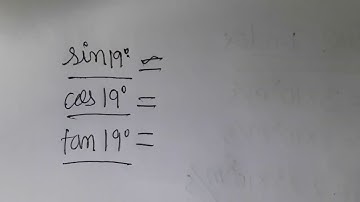 sin19° =
cos 19° =
tan 19° =